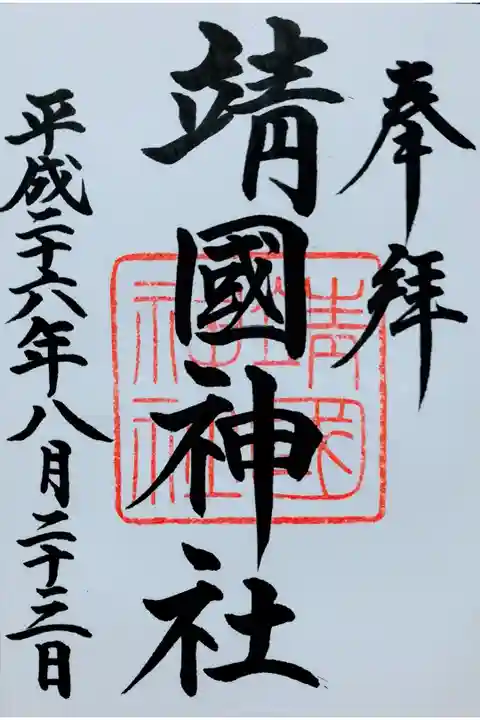 奉拜
靖國神社
靖國神社
平成二十六年八月二十三日